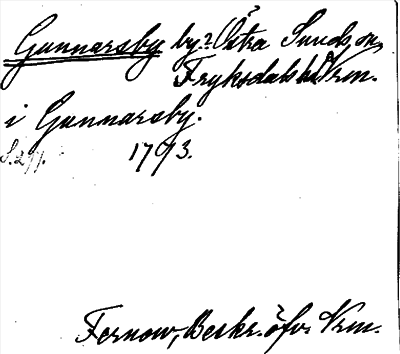 Gunnarsby by? Östra Sunds sn,
Fryksdals hd Vrm.
i Gunnarsby.
S. 297. 1773.
Fernow, Beskr. öfv. Vrm.